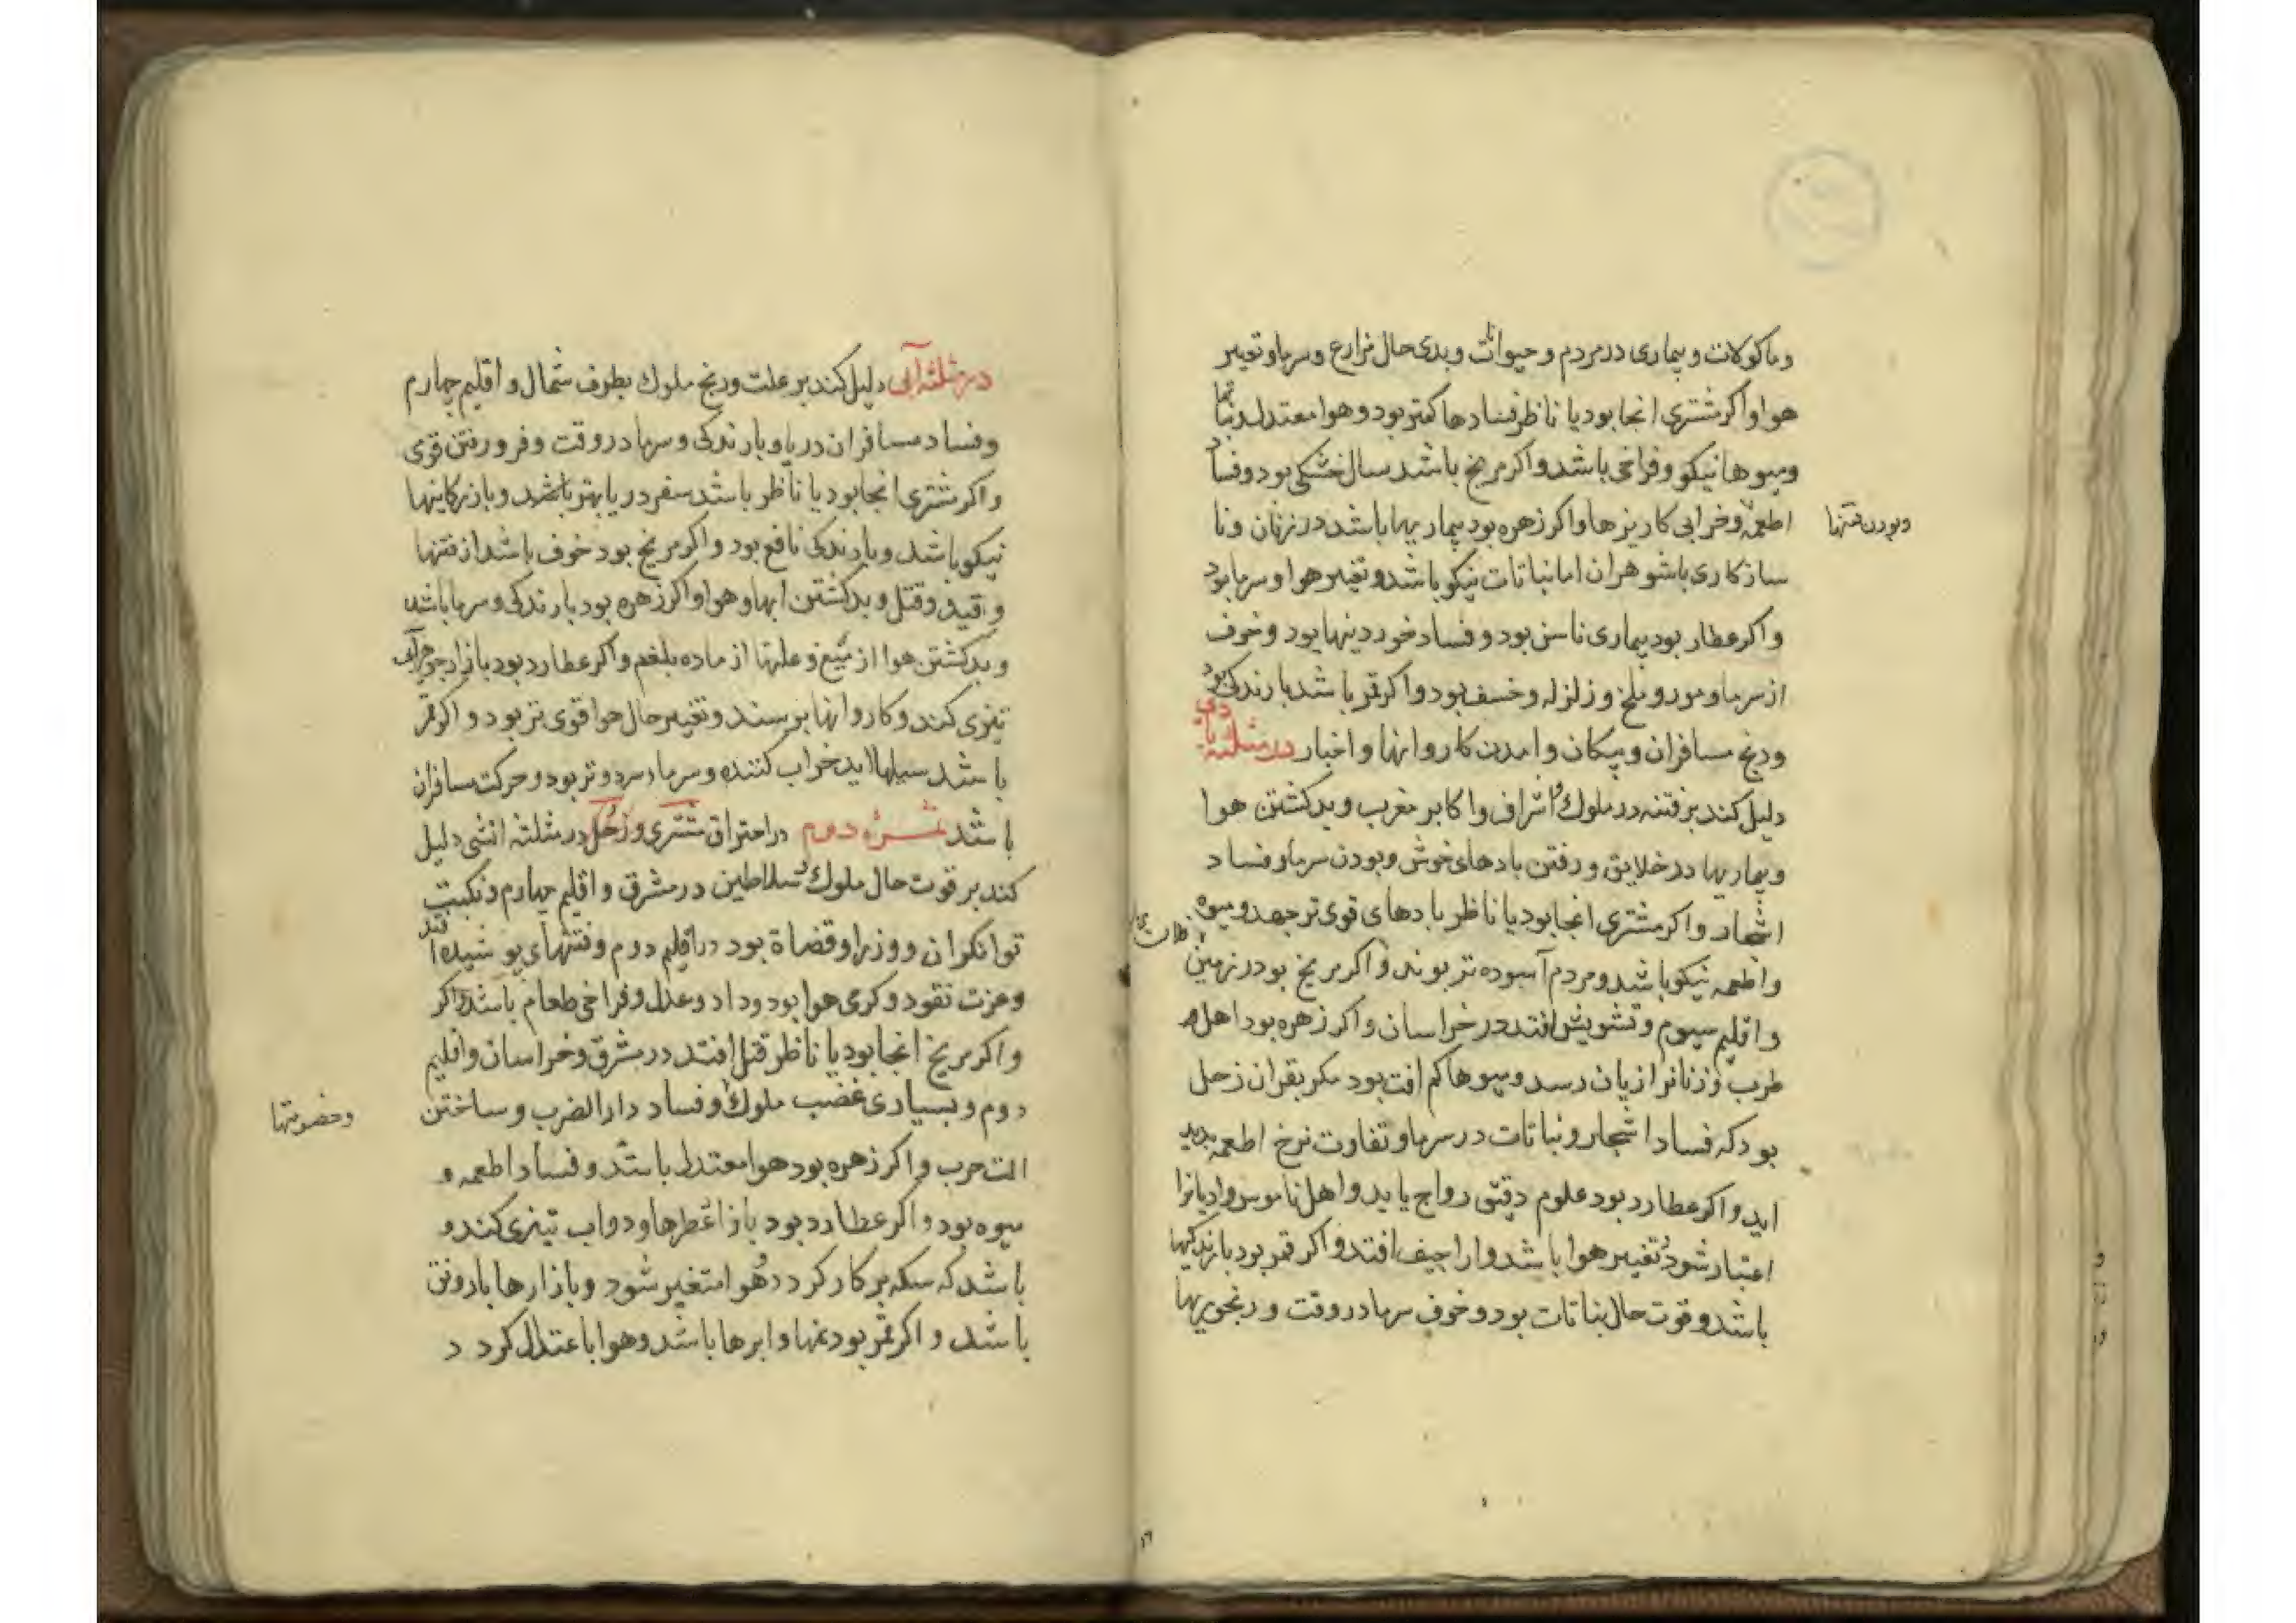 و ماکولات و بیماری در مردم و حیوانات و بدی حال مزارع و سرما و تغییر
هوا و اکر مشتری انجا بود یا ناظر فسادها کمتر بود و هوا معتدل و نباتها
و میوها نیکو و فراخی باشد و اکر مریخ باشد سال خشکی بود و فساد
اطعمه و خرابی کاریزها و اکر زهره بود بیماریها باشد در زنان و نا
و بودن فتنها
سازکاری با شوهران اما نباتات نیکو باشد و تغییر هوا و سرما بود
و اکر عطارد بود بیماری ناس بود و فساد خوردینها بود و خوف
از سرما و مور و ملخ و زلزله و خسف بود و اکر قمر باشد بارندکی بود
و رنج مسافران و پیکان و امدن کاروانها و اخبار در مثلثه بادی
دلیل کند بر فتنه در ملوک و اشراف و اکابر مغرب و بد کشتن هوا
و بیماریها در خلایق و رفتن بادهای خوش و بودن سرما و فساد
اشجار و اکر مشتری انجا بود یا ناظر بادهای قوی تر جهد و میوه
و اطعمه نیکو باشد و مردم آسوده تر بوند و اکر مریخ بود در زمین
و اقلیم سیوم و تشویش افتد در خراسان و اکر زهره بود اهل
طرب و زنانرا زیان رسد و میوها کم افت بود مکر بقران زحل
بود که فساد اشجار و نباتات در سرما و تفاوت نرخ اطعمه پدید
اید و اکر عطارد بود علوم دقیق رواج یابد و اهل ناموس و ادیانرا
اعتبار شود و تغییر هوا باشد و اراجیف افتد و اکر قمر بود بارندکیها
باشد و قوت حال نباتات بود و خوف سرما در وقت و رنجوریها
در مثلثه آبی دلیل کند بر علت و رنج ملوک بطرف شمال و اقلیم چهارم
و فساد مسافران دریا و بارندکی و سرما در وقت و فرو رفتن قوی
و اکر مشتری انجا بود یا ناظر باشد سفر دریا بهتر باشد و بازرکانیها
نیکو باشد و بارندکی نافع بود و اکر مریخ بود خوف باشد از فتنها
و قید و قتل و بد کشتن ابها و هوا و اکر زهره بود بارندکی و سرما باشد
و بد کشتن هوا از میغ و علتها از ماده بلغم و اکر عطارد بود بازار جوهر آبی
تیزی کند و کاروانها برسند و تغییر حال هوا قوی تر بود و اکر قمر
باشد سیلها اید خراب کننده و سرما سرد و تر بود و حرکت مسافران
باشد ثمره دوم در احتراق مشتری و زحل در مثلثه اتشی دلیل
کند بر قوت حال ملوک و سلاطین در مشرق و اقلیم چهارم و نکبت
توانکران و وزرا و قضاة بود در اقلیم دوم و فتنهای پوشیده افتد
و عزت نقود و کرمی هوا بود و داد و عدل و فراخی طعام باشد و اکر
و اکر مریخ انجا بود یا ناظر قتل افتد در مشرق و خراسان و اقلیم
دوم و بسیاری غضب ملوک و فساد دار الضرب و ساختن
و خصومتها
الت حرب و اکر زهره بود هوا معتدل باشد و فساد اطعمه و
میوه بود و اکر عطارد بود بازار عطرها و دواب تیزی کند و
باشد که سکه بر کار کردد و هوا متغیر شود و بازارها با رونق
باشد و اکر قمر بود نمها و ابرها باشد و هوا با عتدال کرد د